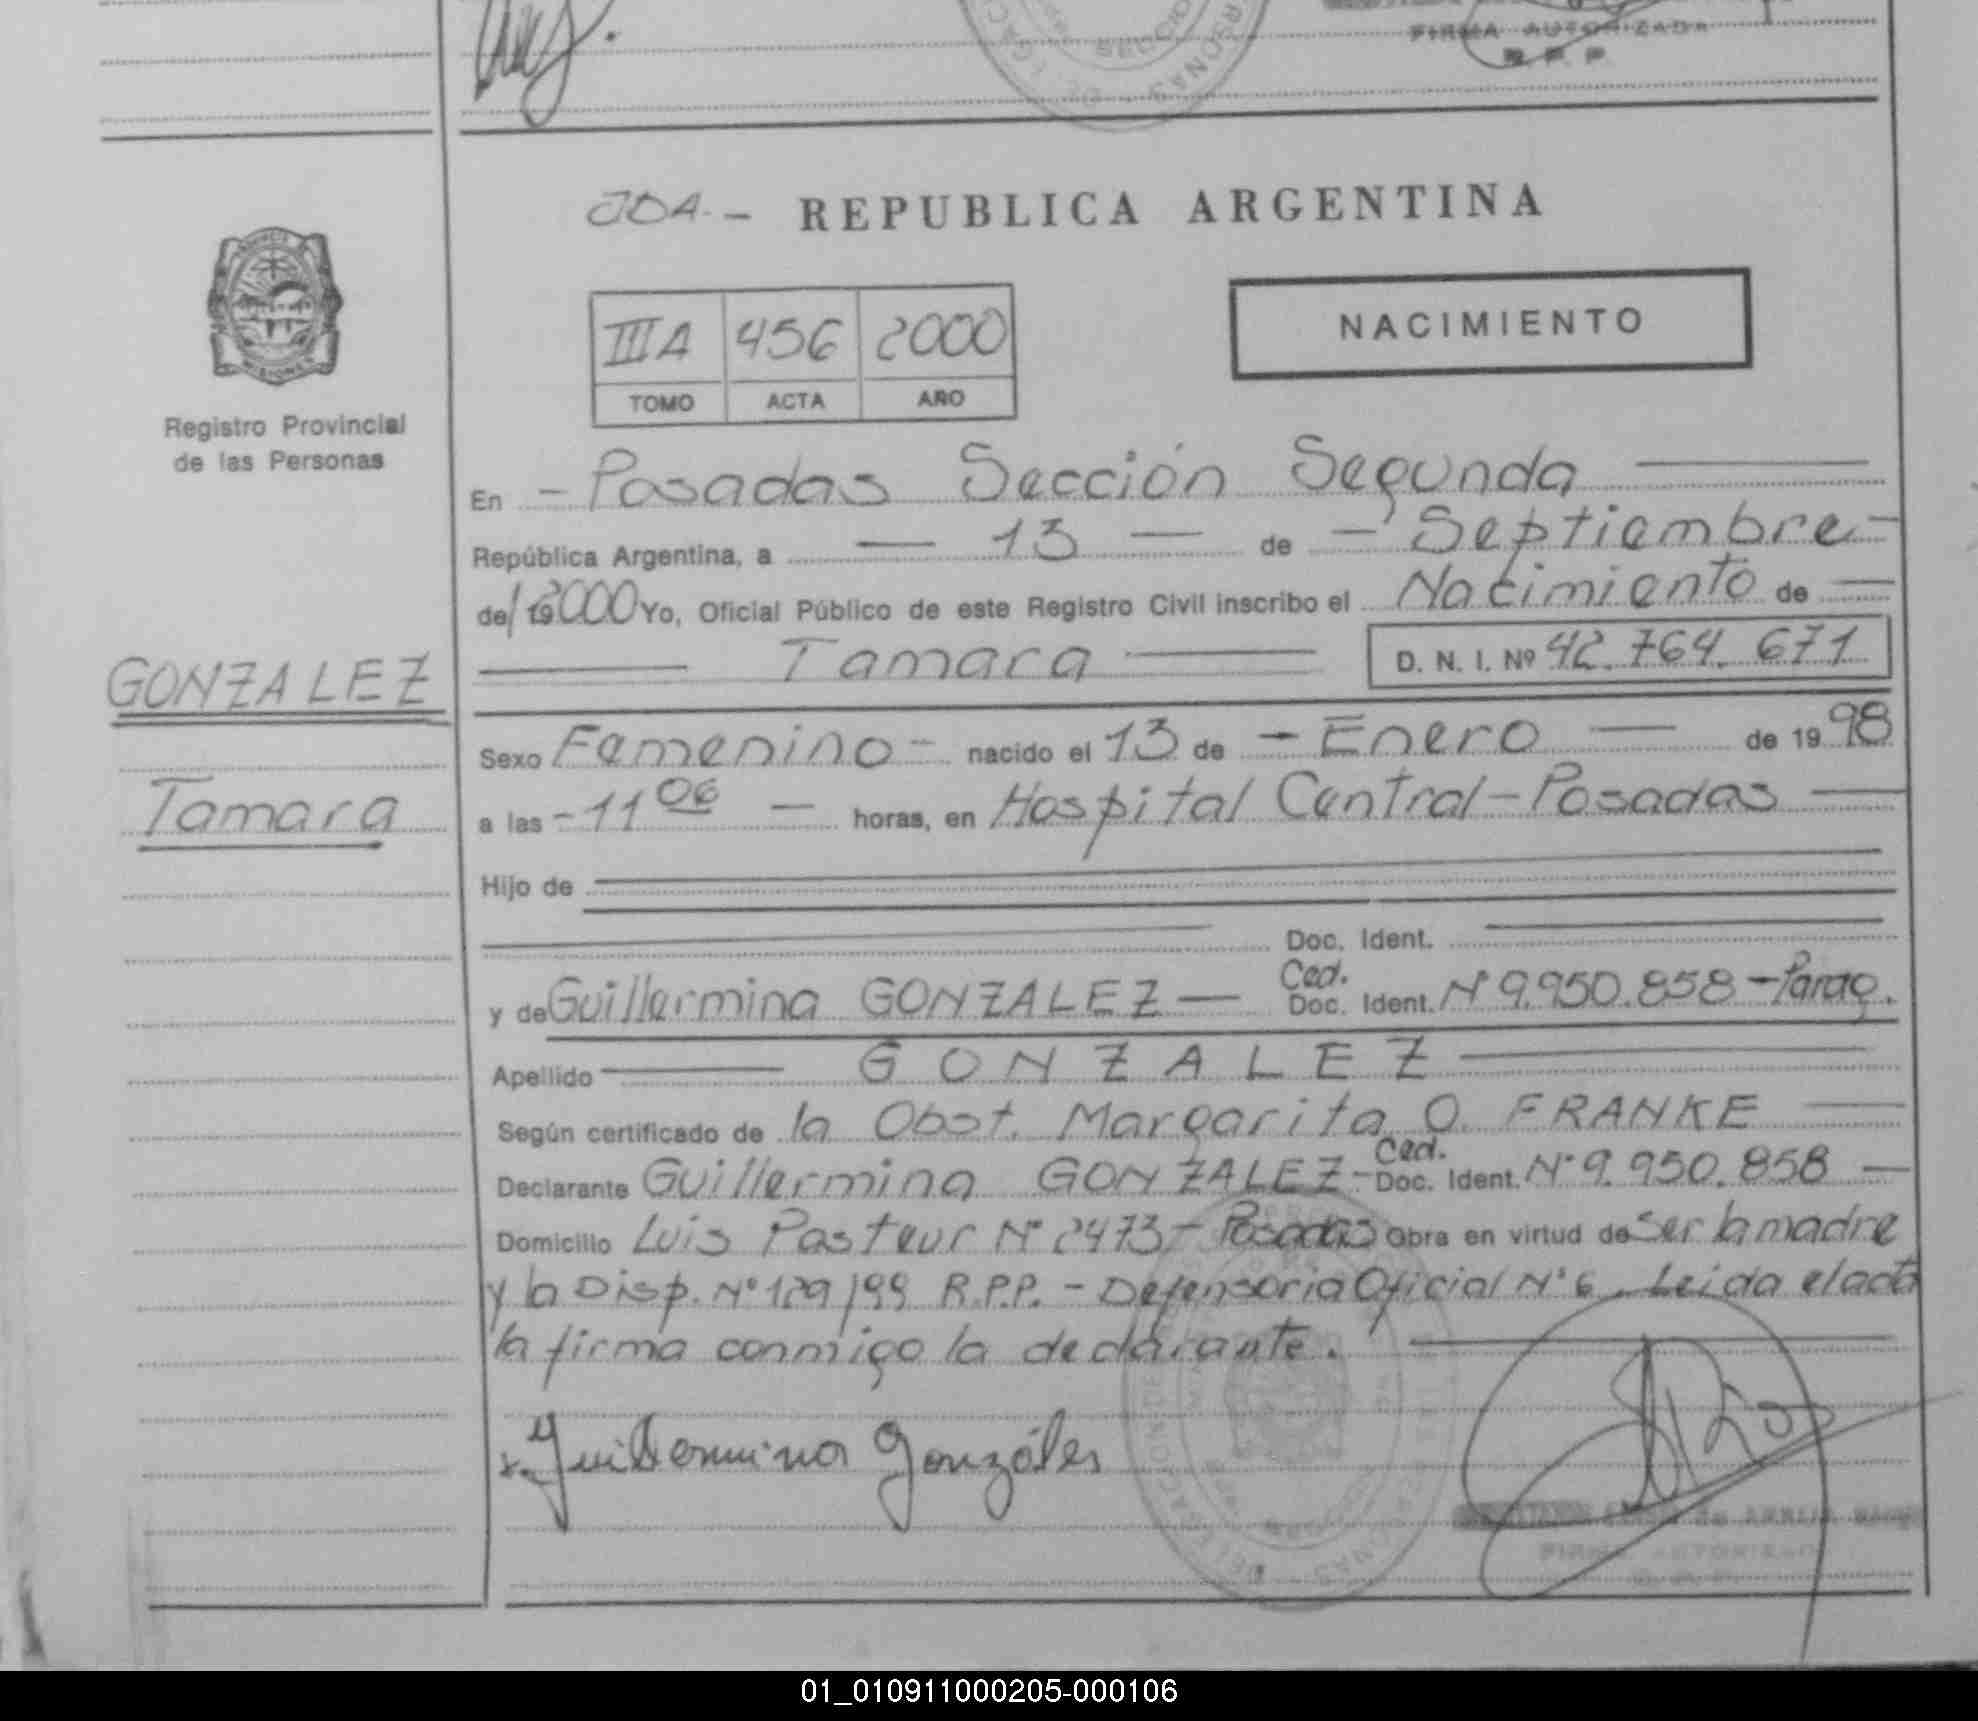 FIRMA AUTORIZADA
R. P. P.
JDA. - REPUBLICA ARGENTINA
NACIMIENTO
IIIA 456 2000
TOMO ACTA AÑO
Registro Provincial
de las Personas
En - Posadas Sección Segunda
República Argentina, a - 13 - de - Septiembre -
de/ 192000 Yo, Oficial Público de este Registro Civil inscribo el Nacimiento de
Tamara D. N. I. Nº 42.764.671
GONZALEZ
Tamara
Sexo Femenino - nacido el 13 de - Enero - de 1998
a las - 11 06 - horas, en Hospital Central - Posadas
Hijo de
Doc. Ident.
y de Guillermina GONZALEZ - Ced. Doc. Ident. Nº 9.950.858 - Parag.
Apellido GONZALEZ
Según certificado de la Obst. Margarita O. FRANKE
Declarante Guillermina GONZALEZ - Ced. Doc. Ident. Nº 9.950.858 -
Domicilio Luis Pasteur Nº 2473 - Posadas Obra en virtud de Ser la madre
y la Disp. Nº 129/99 R.P.P. - Defensoria Oficial Nº 6. Leida el acta
la firma conmigo la declarante.
x. Guillermina Gonzáles
01_010911000205-000106